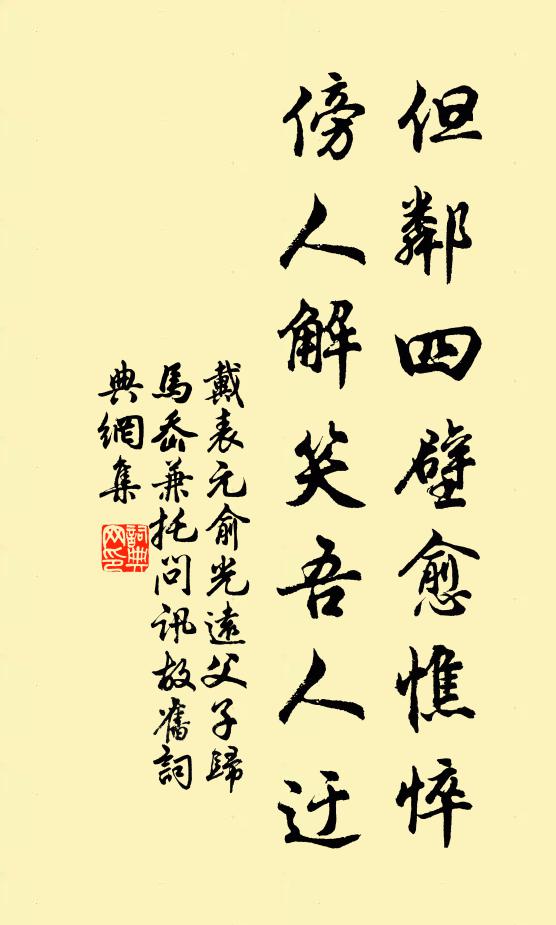 但鄰四壁愈憔悴
傍人解笑吾人迂
戴表元俞光遠父子歸
馬岙兼托問訊故舊詞
典網集
詞典
网印